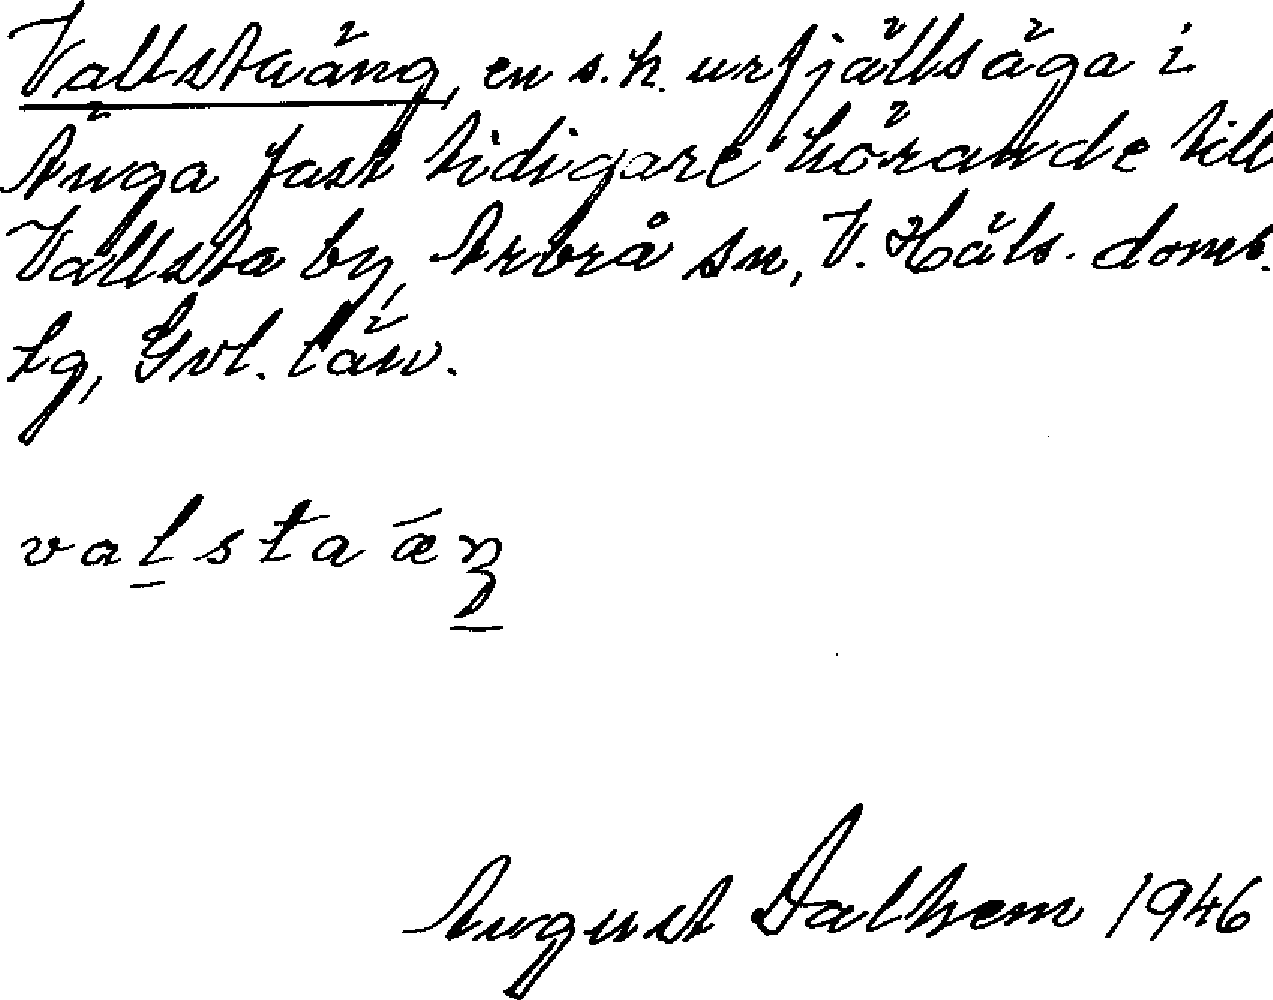 Vallstaäng, en s.k. urfjällsäga i
Änga fast tidigare hörande till
Vallsta by, Arbrå sn, V. Häls. doms.
lg, Gvl. län.
valstaáŋ
August Dalhem 1946